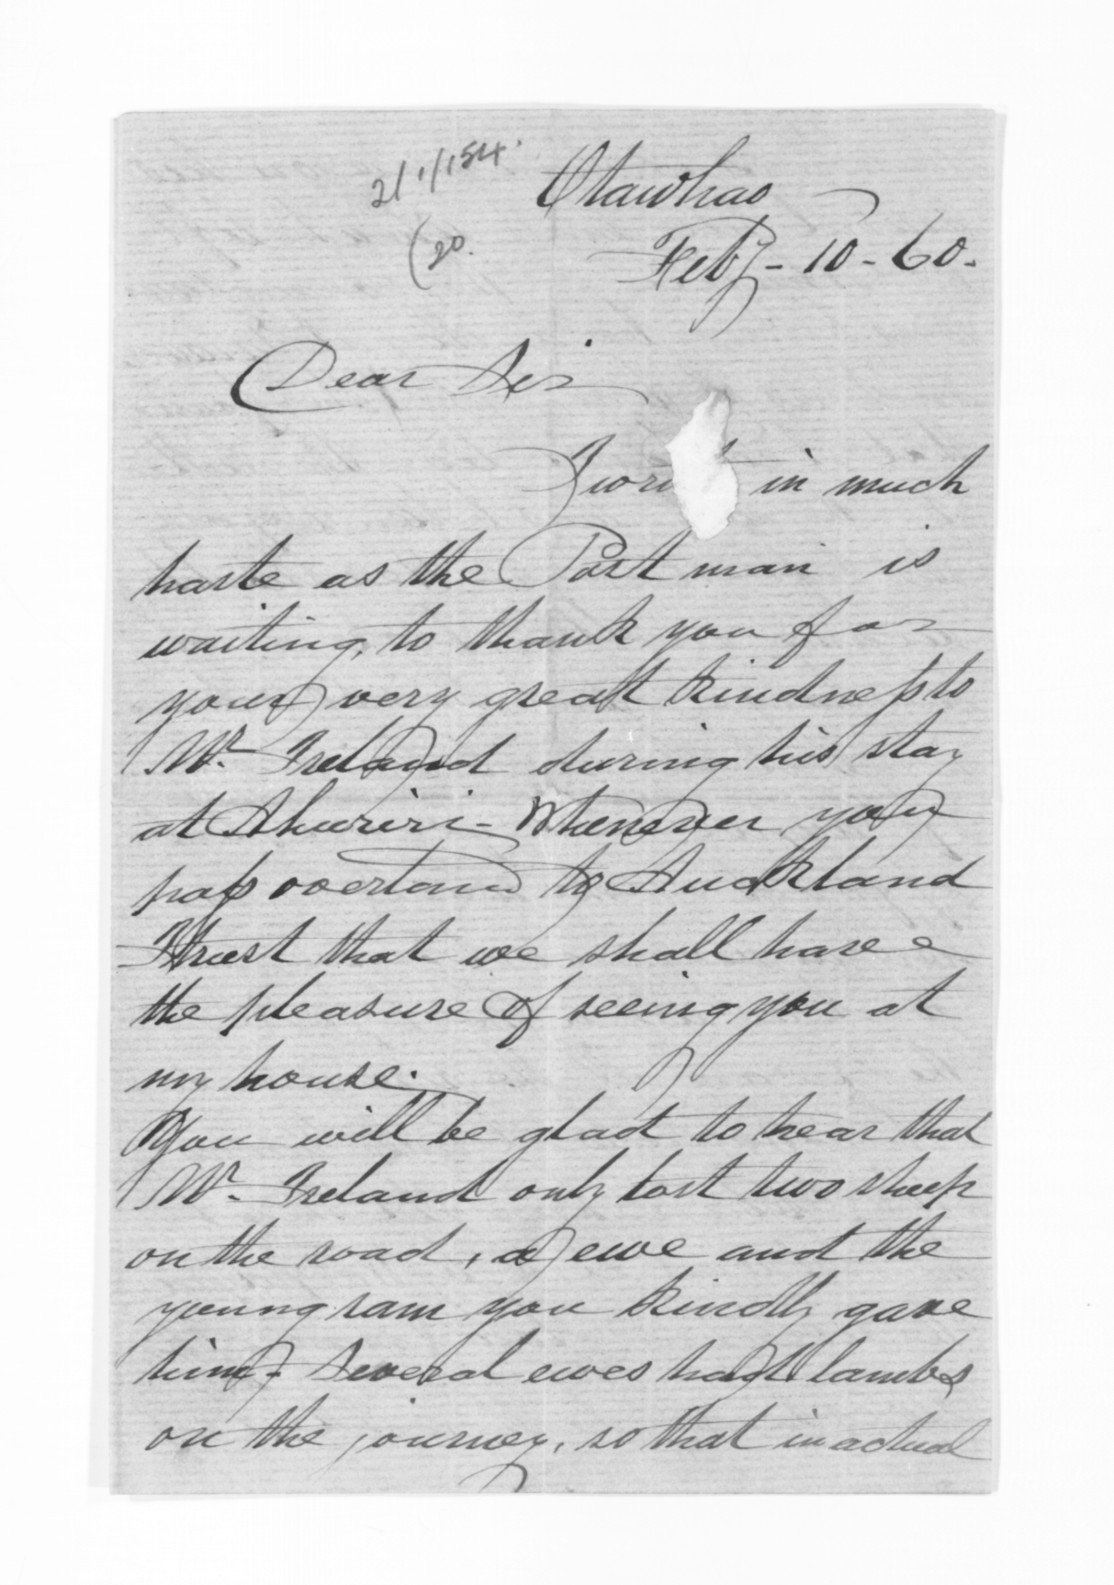 21/1/154.
(20.
Otawhao
Feby - 10 - 60.
Dear Sir
I wri in much
haste as the Post man is
waiting, to thank you for
your very great kindness to
Mr. Ireland during his stay
at Ahuriri - Whenever you
pass overland to Auckland
I trust that we shall have
the pleasure of seeing you at
my house.
You will be glad to hear that
Mr. Ireland only lost two sheep
on the road, a ewe and the
young ram you kindly gave
him - Several ewes had lambs
on the journey, so that in actual